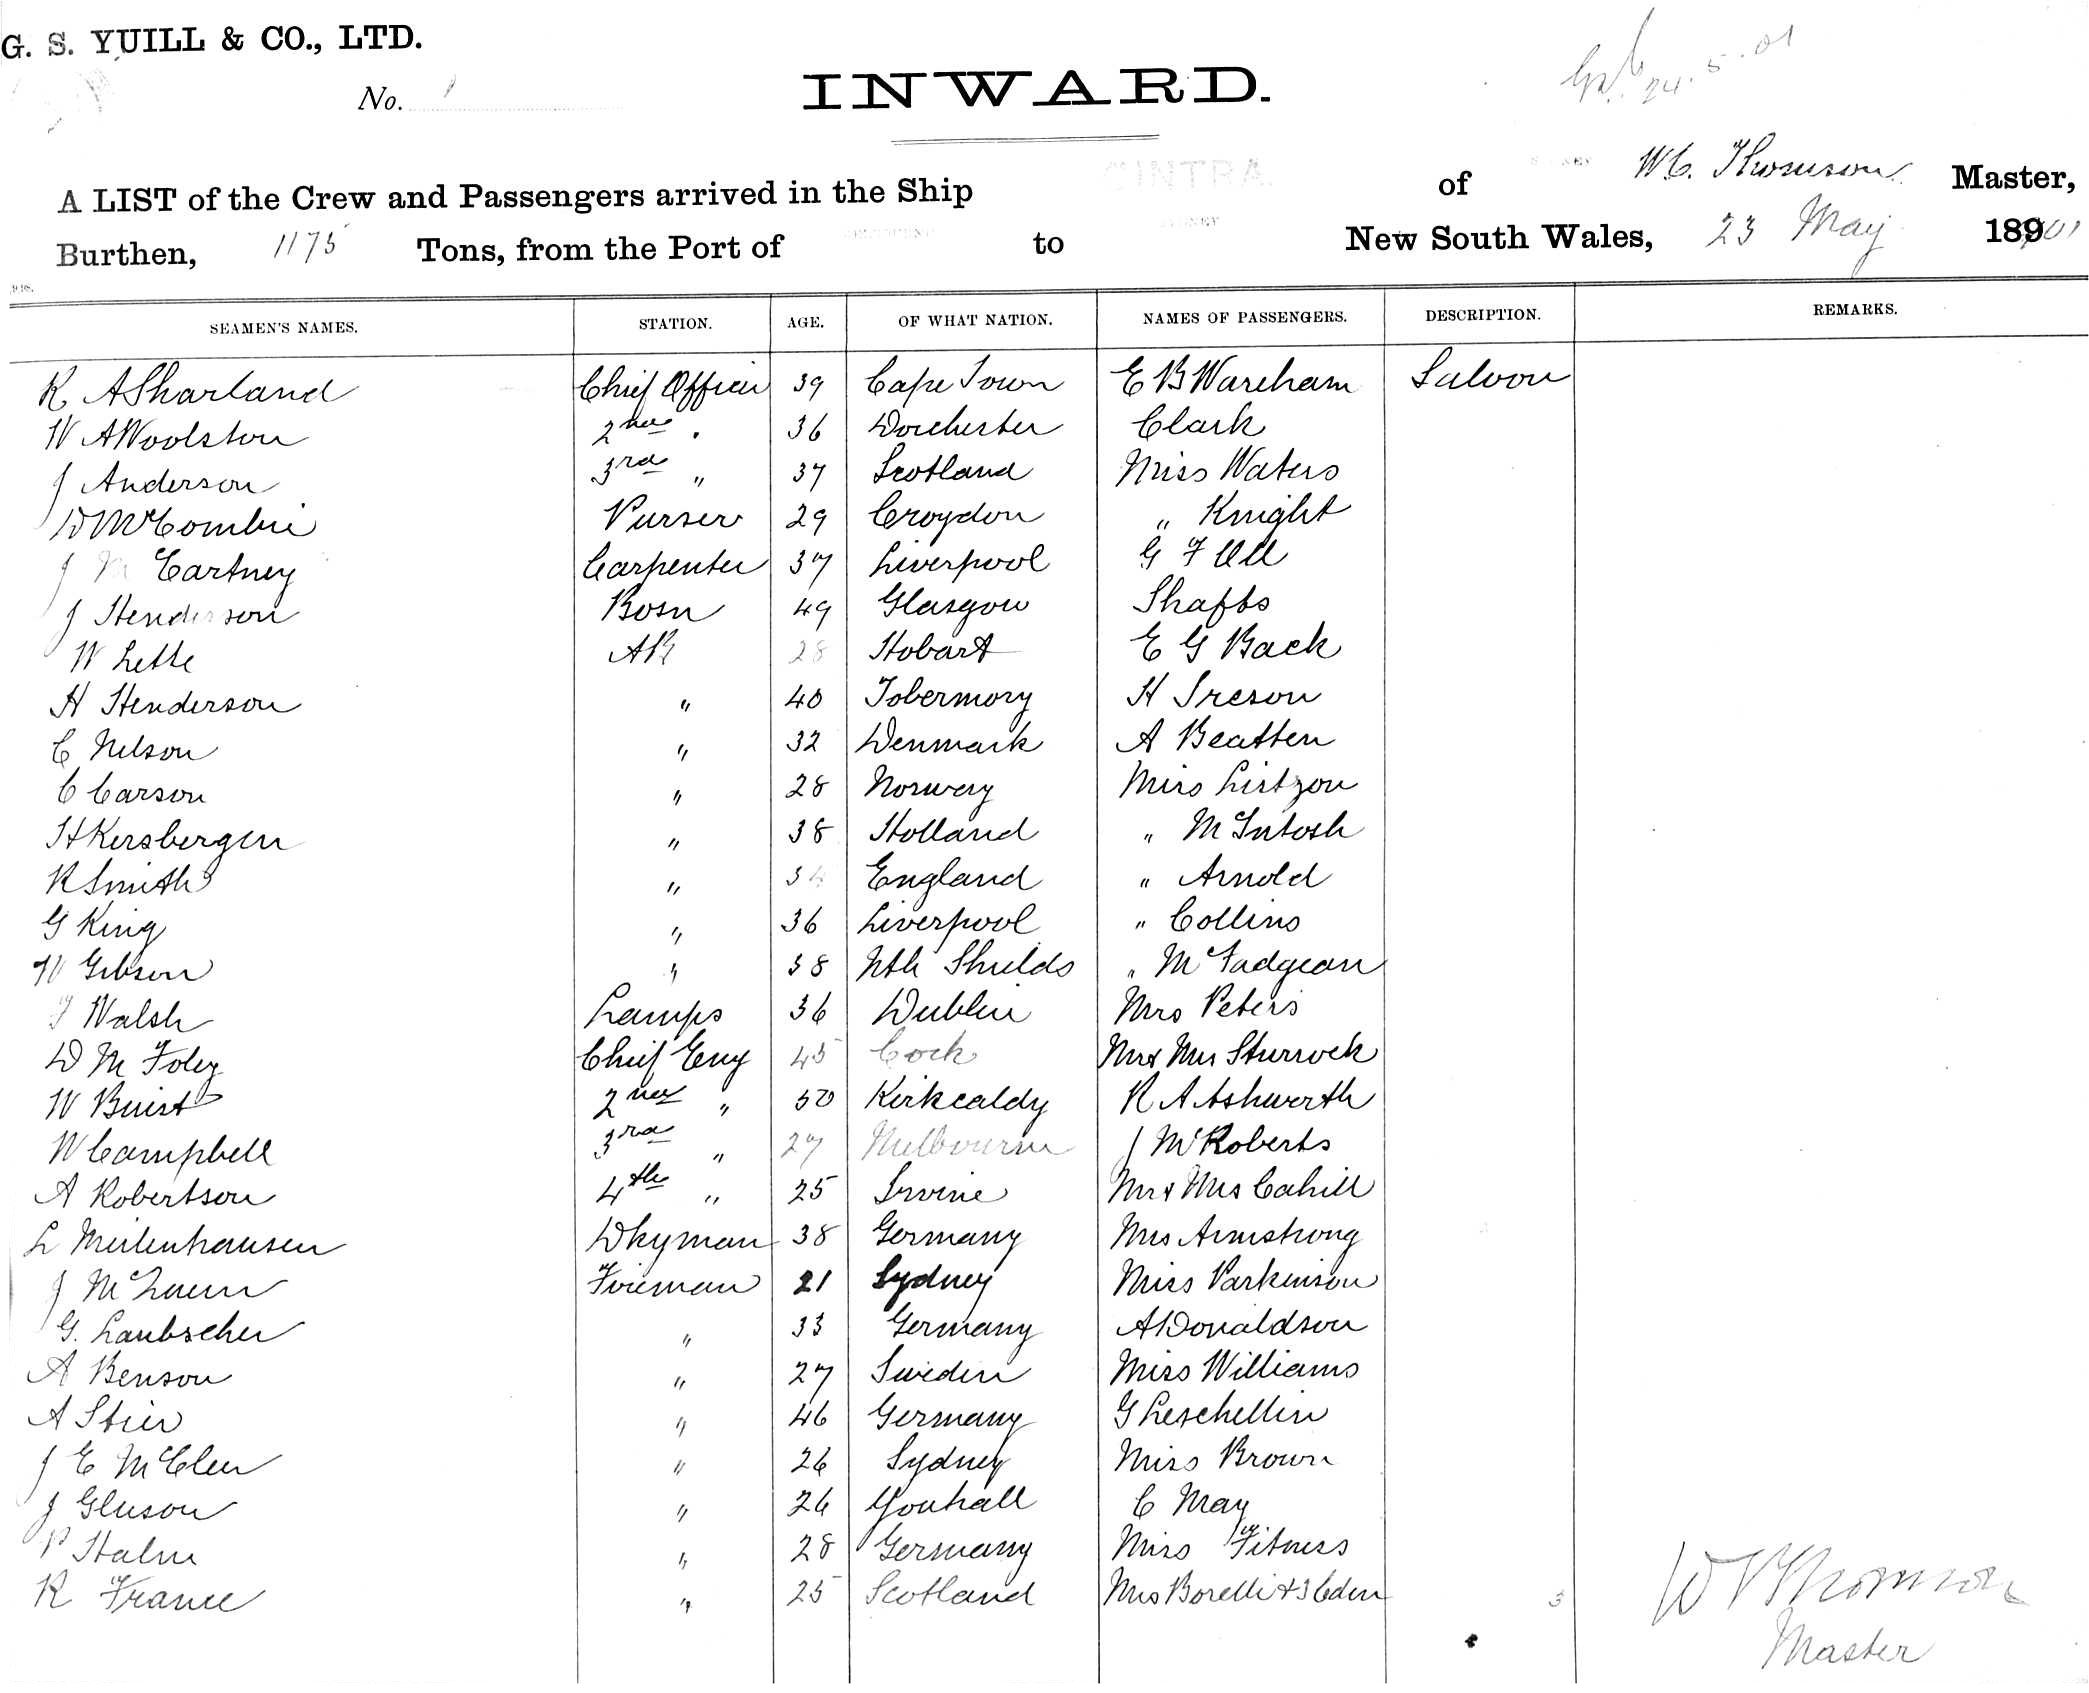 G. S. YUILL & CO., LTD.
24.5.01
No. 1
INWARD.
A LIST of the Crew and Passengers arrived in the Ship CINTRA of W C. Thomson Master,
Burthen, 1175 Tons, from the Port of to New South Wales, 23 May 1901
SEAMEN'S NAMES. STATION. AGE. OF WHAT NATION. NAMES OF PASSENGERS. DESCRIPTION. REMARKS.
R A Sharland Chief Officer 39 Cape Town E B Wareham Saloon
W A Woolston 2nd " 36 Dorchester Clark
J Anderson 3rd " 37 Scotland Miss Waters
D McCombie Purser 29 Croydon " Knight
J Mc Cartney Carpenter 37 Liverpool G F
J Henderson Bosn 49 Glasgow Shafts
W Lette AB 28 Hobart E G Back
H Henderson " 40 Tobermory H Ireson
C Nelson " 32 Denmark A Beatten
C Carson " 28 Norway Miss Listzon
H Kersbergen " 38 Holland " McIntosh
R Smith " 34 England " Arnold
G King " 36 Liverpool " Collins
W Gibson " 38 Nth Shields " McFadgean
J Walsh Lamps 36 Dublin Mrs Peters
D M Foley Chief Eng 45 Cork Mr & Mrs Sturrock
W Buist 2nd " 50 Kirkcaldy R A Ashworth
W Campbell 3rd " 27 Melbourne J McRoberts
A Robertson 4th " 25 Irvine Mr & Mrs Cahill
L Meilenhausen Dkyman 38 Germany Mrs Armstrong
J Fireman 21 Sydney Miss Parkinson
G. Laubscher " 33 Germany A Donaldson
A Benson " 27 Sweden Miss Williams
A Stier " 46 Germany G Leschellin
J E McClen " 26 Sydney Miss Brown
J Gleeson " 26 Youhall C May
P Halm " 28 Germany Miss Fitness
R France " 25 Scotland Mrs Borelli & 3 Cdrn 3
W C Thomson
Master